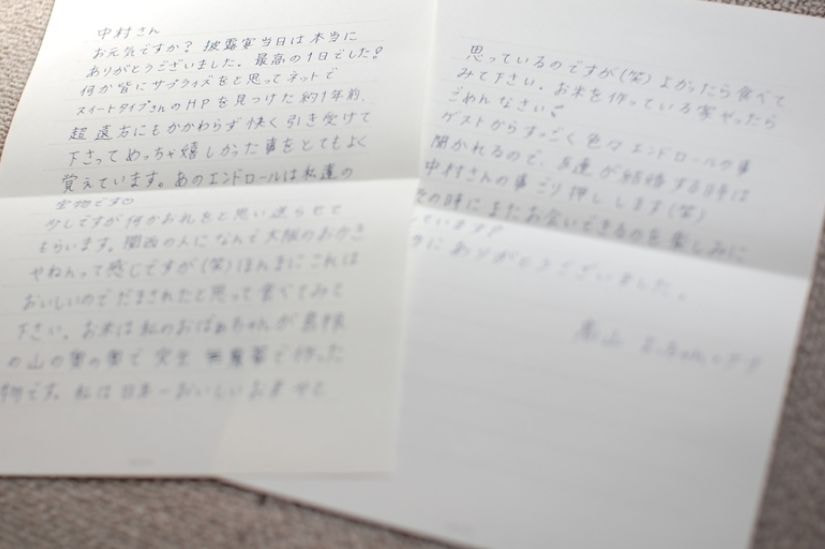 中村さん
お元気ですか？ 披露宴当日は本当に
ありがとうございました。最高の1日でした！
何か皆にサプライズをと思ってネットで
スイートタイプさんのHPを見つけた約1年前、
超遠方にもかかわらず快く引き受けて
下さってめっちゃ嬉しかった事をとてもよく
覚えています。あのエンドロールは私達の
宝物です♡
少しですが何かお礼をと思い送らせて
もらいます。関西の人になんで大阪のおかき
やねんって感じですが(笑)ほんまにこれは
おいしいのでだまされたと思って食べてみて
下さい。お米は私のおばぁちゃんが島根
の山の奥の奥で完全無農薬で作った
物です。私は日本一おいしいお米やと
思っているのですが(笑)よかったら食べて
みて下さい。お米を作っている家やったら
ごめんなさい！
ゲストからすっごく色々エンドロールの事
聞かれるので、友達が結婚する時は
中村さんの事ごり押しします(笑)
その時にまたお会いできるのを楽しみに
しています！
にありがとうございました。
高山